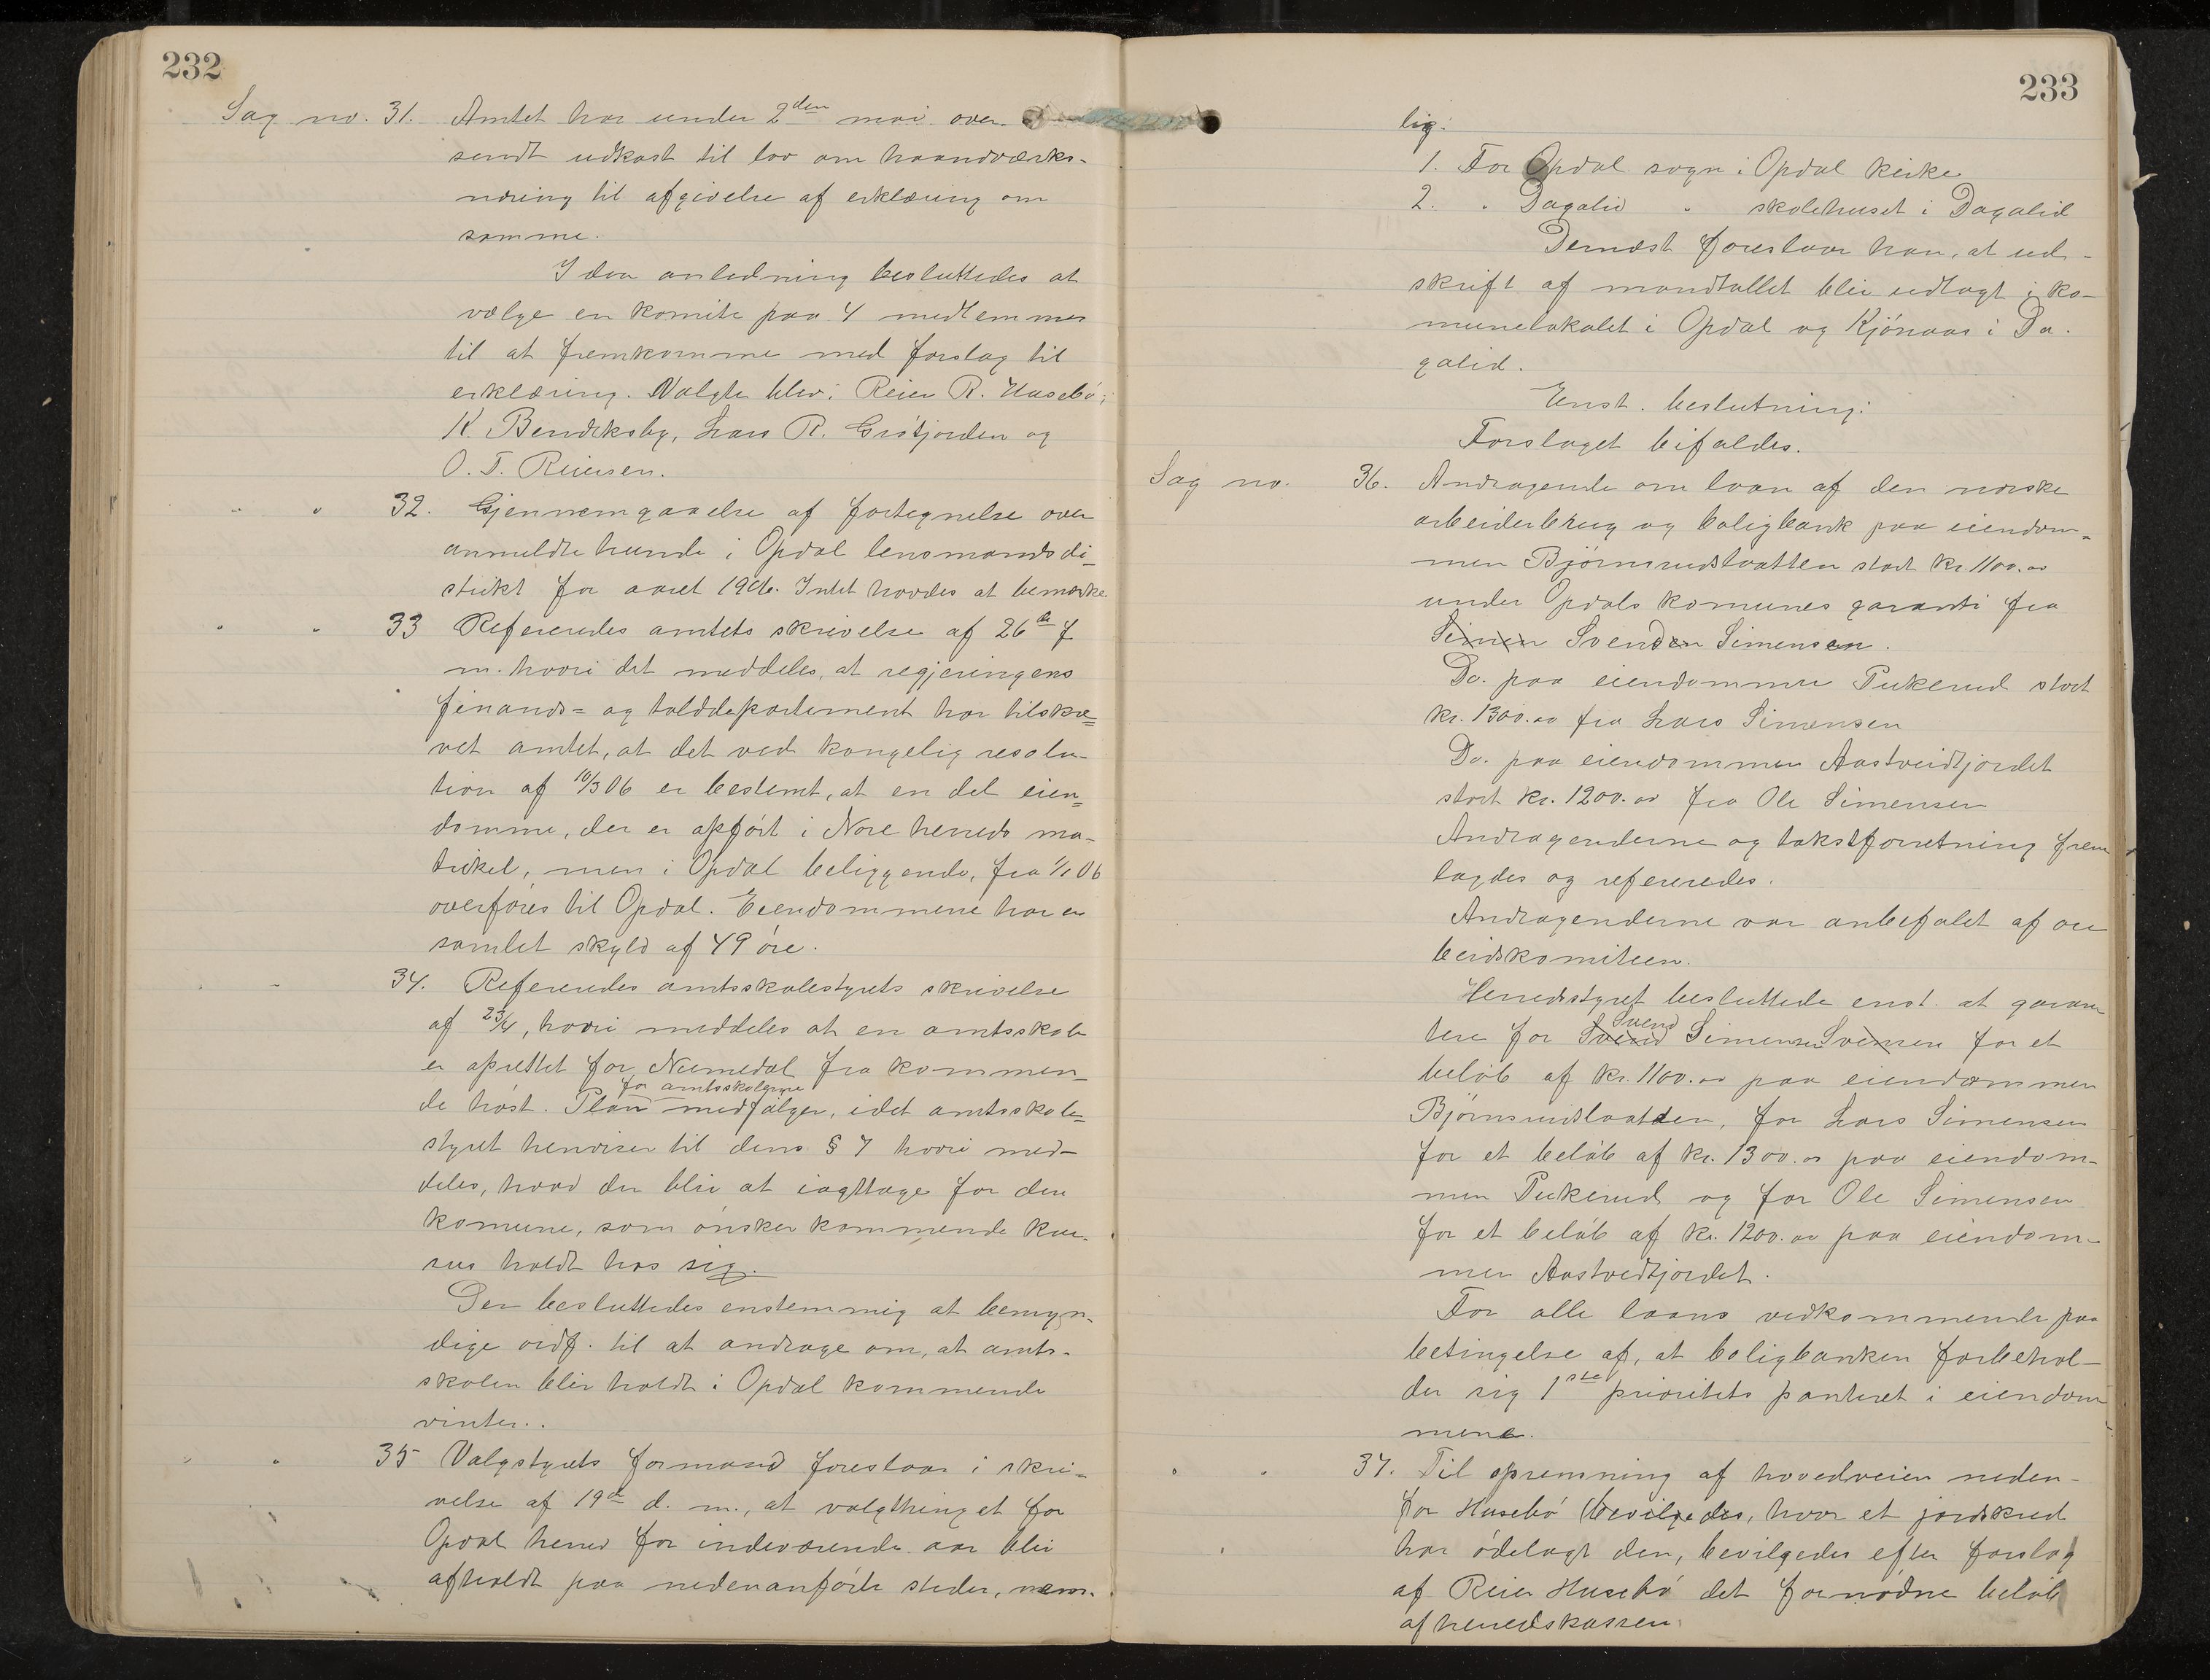 232
Sag no. 31. Amtet har under 2den mai over-
sendt udkast til lov om haandværks-
næring til afgivelse af erklæring om
samme.
I den anledning besluttedes at
vælge en komite paa 4 medlemmer
til at fremkomme med forslag til
erklæring. Valgte blev: Reier R. Husebö,
K. Bendiksby, Lars R. Grötjorden og
O. T. Reiersen.
" " 32. Gjennemgaaelse af fortegnelse over
anmeldte hunde i Opdal lensmandsdi-
strikt for aaret 1906. Intet havdes at bemærke
" " 33 Refereredes amtets skrivelse af 26de f.
m. hvori det meddeles, at regjeringens
finands= og tolddepartement har tilskre=
vet amtet, at det ved kongelig resolu-
tion af 10/3 06 er bestemt, at en del eien=
domme, der er opfört i Nore herreds ma-
trikel, men i Opdal beliggende, fra 1/1 06
overföres til Opdal. Eiendommene har en
samlet skyld af 49 öre.
" " 34. Refereredes amtsskolestyrets skrivelse
af 23/4, hvori meddeles at en amtsskole
er oprettet for Numedal fra kommen-
de höst. Plan for amtsskolerne medfölger, idet amtsskole=
styret henviser til dens § 7 hvori med-
deles, hvad der blir at iagttage for den
komune, som önsker kommende kur-
sus holdt hos sig.
Der besluttedes enstemmig at bemyn-
dige ordf. til at andrage om, at amts-
skolen blir holdt i Opdal kommende
vinter.
" " 35 Valgstyrets formand foreslaar i skri-
velse af 19de d. m., at valgthinget for
Opdal herred for indeværende aar blir
afholdt paa nedenanförte steder, nem-
233
lig:
1. For Opdal sogn i Opdal kirke
2. " Dagalid " skolehuset i Dagalid
Dernæst foreslaar han, at ud-
skrift af mandtallet blir udlagt i ko-
munelokalet i Opdal og Kjönaas i Da-
galid.
Enst. beslutning:
Forslaget bifaldes.
Sag no. 36. Andragende om laan af den norske
arbeiderbrug og boligbank paa eiendom-
men Björnsrudslaatten stort kr. 1100.00
under Opdals komunes garanti fra
Simen Svenden Simensen.
Do. paa eiendommen Pukerud stort
kr. 1300.00 fra Lars Simensen
Do. paa eiendommen Aastveidtjordet
stort kr. 1200.00 fra Ole Simensen
Andragenderne og takstforretning frem
lagdes og refereredes.
Andragenderne var anbefalet af ar
beidskomiteen.
Herredsstyret besluttede enst. at garan
tere for Svend Svend Simensen Svensen for et
belöb af kr. 1100.00 paa eiendommen
Björnsrudslaatten, for Lars Simensen
for et belöb af kr. 1300.00 paa eiendom-
men Pukerud og for Ole Simensen
for et belöb af kr. 1200.00 paa eiendom-
men Aastvedtjordet.
For alle laans vedkommende paa
betingelse af, at boligbanken forbehol-
der sig 1ste prioritets panteret i eiendom
mene.
" " 37. Til oprensning af hovedveien neden-
for Husebö bevilgedes, hvor et jordskred
har ödelagt den, bevilgedes efter forslag
af Reier Husebö det fornödne belöb
af herredskassen.